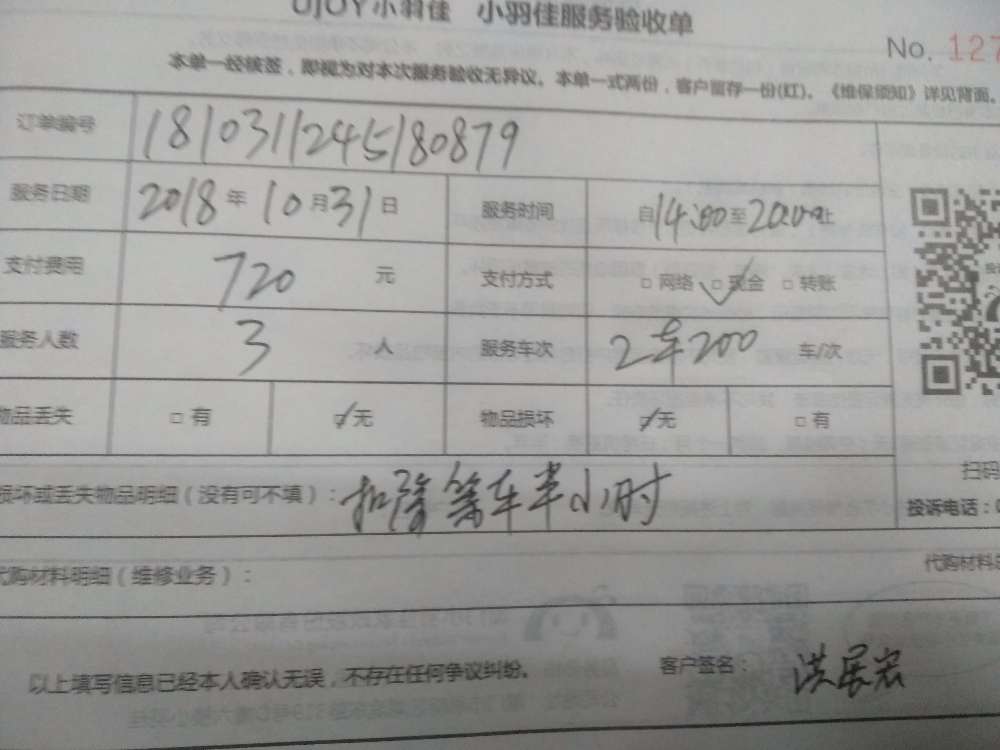 UJOY小羽佳 小羽佳服务验收单
No. 127
本单一经核签，即视为对本次服务验收无异议。本单一式两份，客户留存一份(红)。《维保须知》详见背面。
订单编号 1810311245180879
服务日期 2018年10月31日 服务时间 自14:00至20:00止
支付费用 720 元 支付方式 □网络 □现金 □转账
服务人数 3 人 服务车次 2车200 车/次
物品丢失 □有 □无 物品损坏 □无 □有
损坏或丢失物品明细（没有可不填）：扣除等车半小时
扫码
投诉电话：
代购材料明细（维修业务）： 代购材料
以上填写信息已经本人确认无误，不存在任何争议纠纷。 客户签名：洪展宏